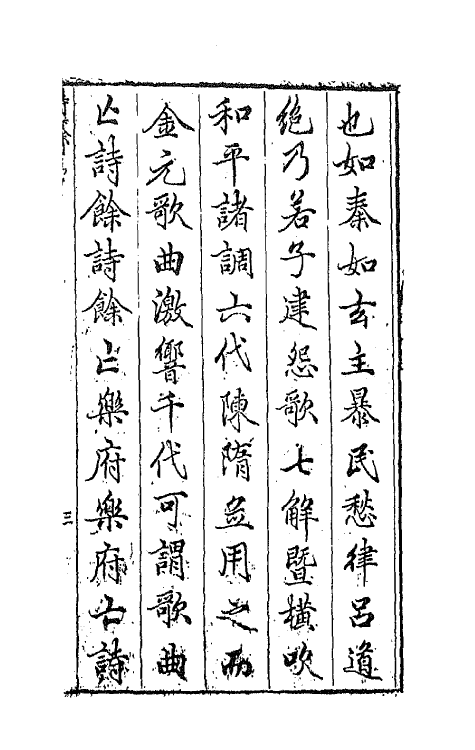 也如秦如玄主暴民愁律呂道
絶乃若子建怨歌七解暨橫吹
和平諸調六代陳隋並用之而
金元歌曲激響千代可謂歌曲
亡詩餘詩餘亡樂府樂府亡詩
三